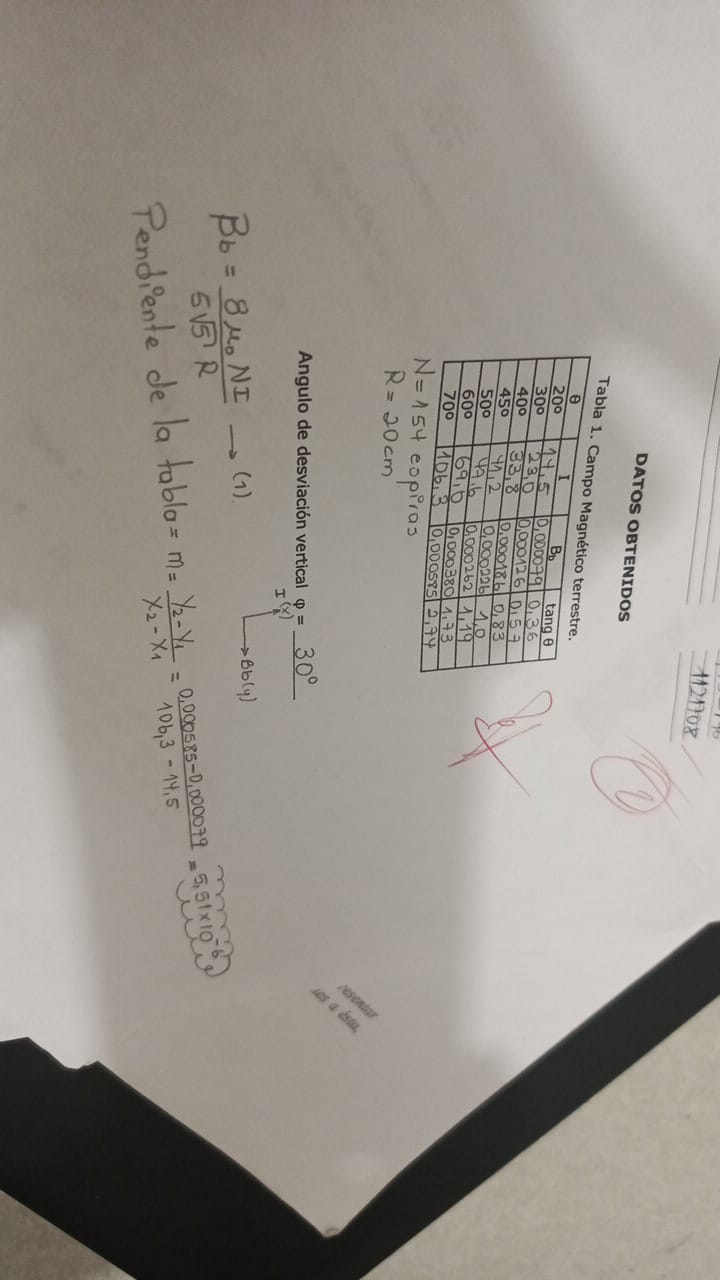 1121708
DATOS OBTENIDOS
Tabla 1. Campo Magnético terrestre.
θ I Bb tang θ
20º 14,5 0,000079 0,36
30º 23,0 0,000126 0,57
40º 33,8 0,000186 0,83
45º 41,2 0,000226 1,0
50º 47,6 0,000262 1,19
60º 69,0 0,000380 1,73
70º 106,3 0,000585 2,74
N = 154 espiras
R = 20cm
resentar
as a ésta.
Angulo de desviación vertical φ = 30º
I (x)
Bb(y)
Bb = 8 μ₀ NI / 5√5 R → (1).
Pendiente de la tabla = m = Y₂ - Y₁ / X₂ - X₁ = 0,000585 - 0,000079 / 106,3 - 14,5 = 5,51 x 10⁻⁶